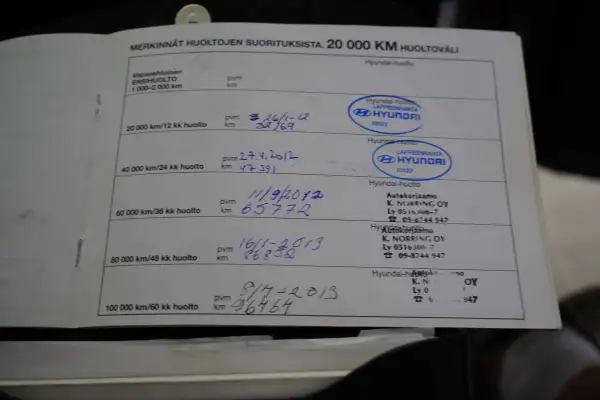 MERKINNÄT HUOLTOJEN SUORITUKSISTA. 20 000 KM HUOLTOVÄLI
Vapaaehtoinen
ENSIHUOLTO
1 000–2 000 km
pvm
km
Hyundai-huolto
20 000 km/12 kk huolto
pvm 26/1-12
km
Hyundai-huolto
LAPPEENRANTA
HYUNDAI
40 000 km/24 kk huolto
pvm 27.4.2012
km 47391
Hyundai-huolto
LAPPEENRANTA
HYUNDAI
60 000 km/36 kk huolto
pvm 11/9/2012
km 65772
Hyundai-huolto
Autokorjaamo
K. NORRING OY
Ly 0516308-7
☎ 09-8744 947
80 000 km/48 kk huolto
pvm 16/1-2013
km
Hyundai-huolto
Autokorjaamo
K. NORRING OY
Ly 0516308-7
☎ 09-8744 947
100 000 km/60 kk huolto
pvm 8/7-2013
km 96464
Hyundai-huolto
OY
947